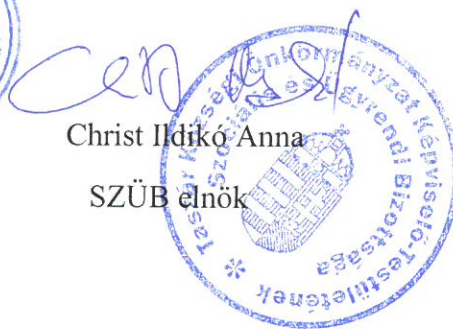 Christ Ildikó Anna
SZÜB elnök
Község Önkormányzat Képviselő-Testületének
Szociális és Ügyrendi Bizottsága